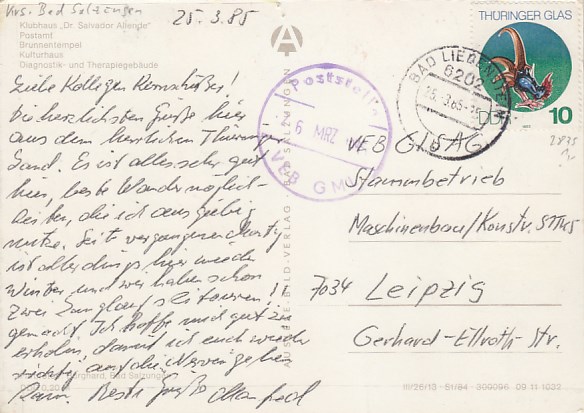 Krs. Bad Salzungen
25.3.85
Klubhaus „Dr. Salvador Allende"
Postamt
Brunnentempel
Kulturhaus
Diagnostik- und Therapiegebäude
Liebe Kollegen
die herzlichsten Grüße hier
aus dem herrlichen Thüringer
Land. Es ist alles sehr gut
hier, beste Wandermöglich-
keiten, die ich ausgiebig
nutze. Seit vergangenen
ist allerdings hier wieder
Winter und wir haben schon
zwei Langlaufskitouren
gemacht. Ich hoffe mich gut zu
erholen, damit ich euch wieder
richtig auf die Nerven gehen
kann. Beste Grüße Manfred
BAD SALZUNGEN
BILD-VERLAG
Burghard, Bad Salzungen
THÜRINGER GLAS
10
DDR
BAD LIEBENSTEIN
6202
Poststelle
6 MRZ
VEB GM
VEB GISAG
Stammbetrieb
Maschinenbau/Konstr.
7034 Leipzig
Gerhard-Ellrodt-Str.
III/26/13 51/84 309096 09 11 1032